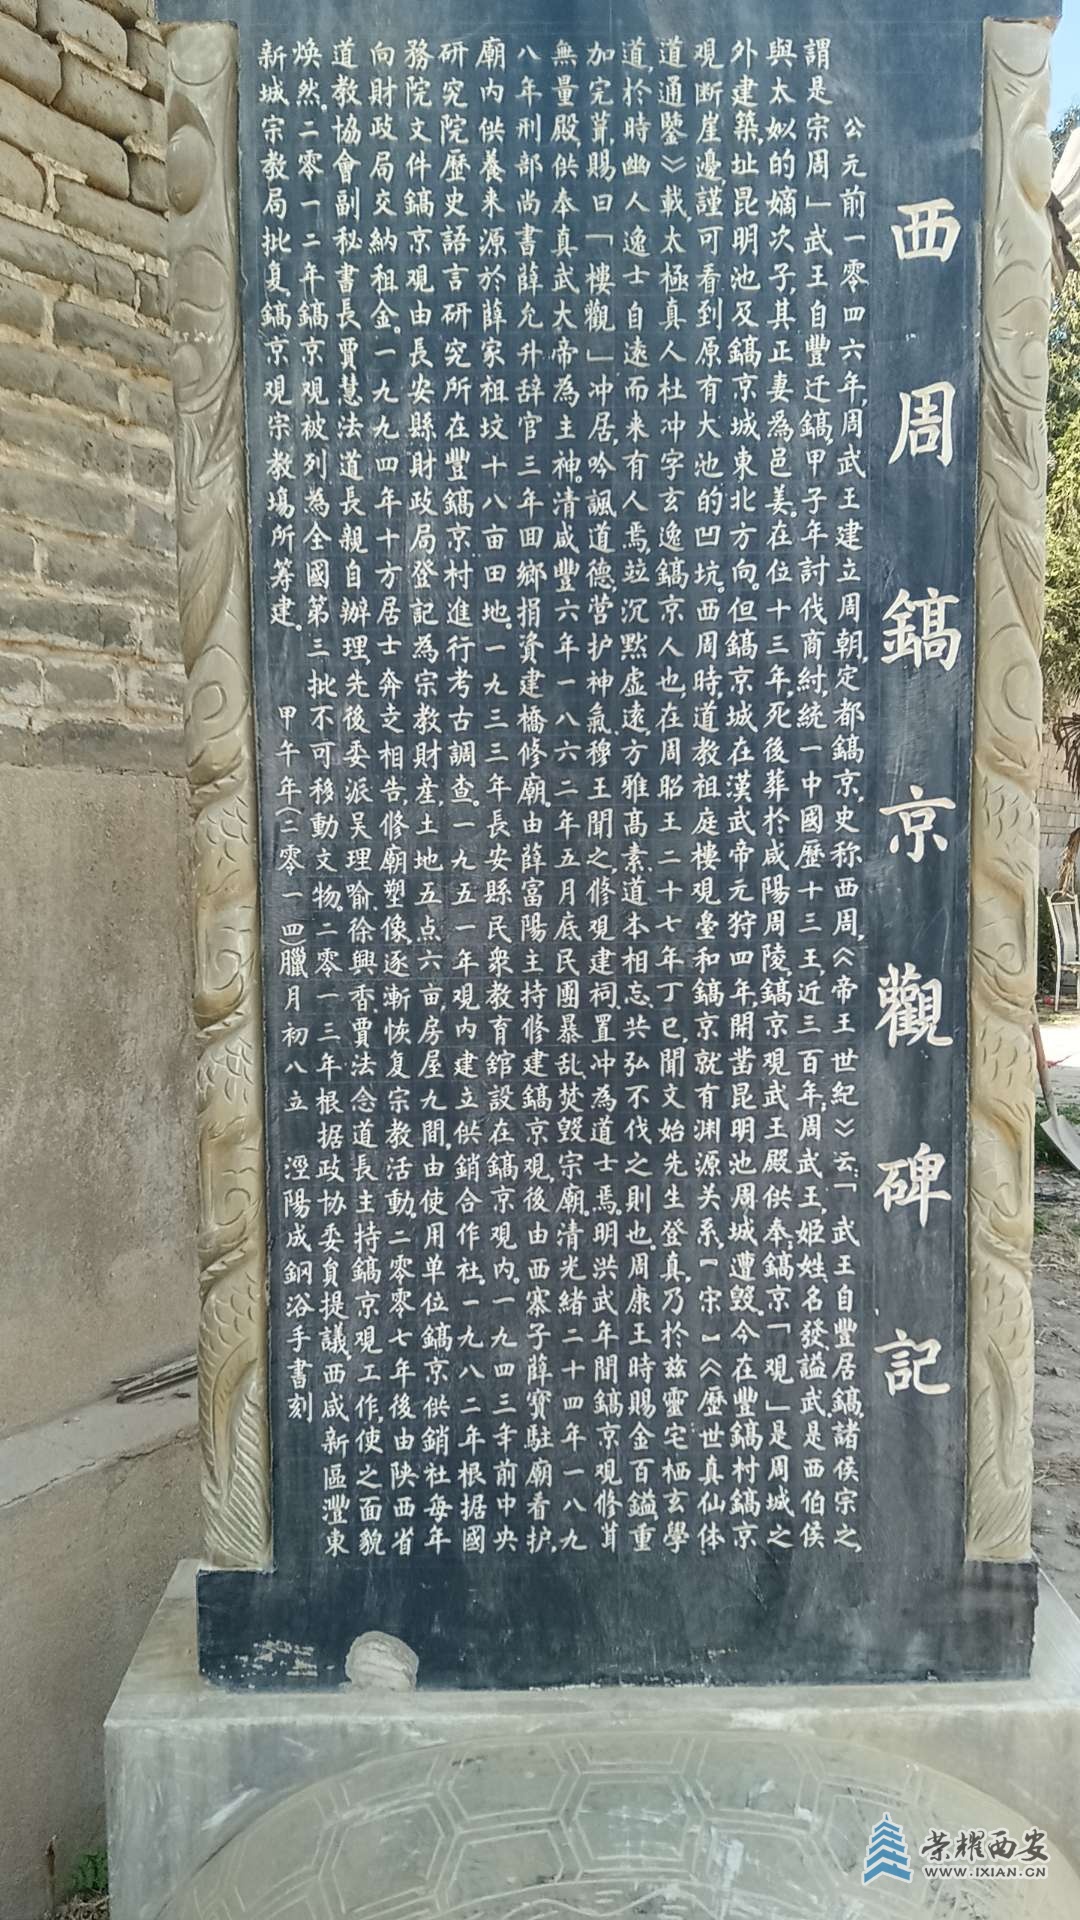 西周鎬京觀碑記
公元前一零四六年,周武王建立周朝,定都鎬京,史称西周,《帝王世紀》云:「武王自豐居鎬,諸侯宗之,
謂是宗周」武王自豐迁鎬,甲子年討伐商紂,統一中國歷十三王,近三百年,周武王,姬姓,名發,謚武,是西伯侯
與太姒的嫡次子,其正妻為邑姜。在位十三年,死後葬於咸陽周陵,鎬京观武王殿供奉;鎬京「观」是周城之
外建築,址昆明池及鎬京城東北方向。但鎬京城在漢武帝元狩四年,開凿昆明池周城遭毁。今在豐鎬村鎬京
观断崖邊謹可看到原有大池的凹坑。西周時,道教祖庭樓观臺和鎬京就有渊源关系,【宋】《歷世真仙体
道通鑒》載,太極真人杜冲字玄逸鎬京人也,在周昭王二十七年丁巳,聞文始先生登真,乃於兹靈宅栖玄學
道,於時幽人逸士自遠而来有人焉,竝沉默虚遠,方雅高素,道本相忘,共弘不伐之則也。周康王時賜金百鎰,重
加完葺,賜曰「樓觀」冲居,吟諷道德,营护神氣穆王聞之,修观建祠,置冲為道士焉。明洪武年間鎬京观修葺
無量殿,供奉真武大帝為主神。清咸豐六年一八六二年五月底民團暴乱,焚毁宗廟。清光緒二十四年一八九
八年刑部尚書薛允升辞官三年回鄉捐資建橋修廟。由薛富陽主持修建鎬京观,後由西寨子薛寶駐廟看护,
廟内供養来源於薛家祖坟十八亩田地。一九三三年長安縣民衆教育舘設在鎬京观内。一九四三年前中央
研究院歷史語言研究所在豐鎬京村進行考古調查。一九五一年观内建立供銷合作社。一九八二年根据國
務院文件鎬京观由長安縣財政局登記為宗教財産,土地五点六亩,房屋九間,由使用单位鎬京供銷社每年
向財政局交納租金。一九九四年十方居士奔走相告,修廟塑像逐漸恢复宗教活動。二零零七年後由陕西省
道教協會副秘書長賈慧法道長親自辦理,先後委派吴理喻、徐興香、賈法念道長主持鎬京观工作,使之面貌
焕然。二零一二年鎬京观被列為全國第三批不可移動文物。二零一三年根据政协委負提議,西咸新區灃東
新城宗教局批复,鎬京观宗教場所筹建。 甲午年(二零一四)臘月初八立 涇陽成鋼浴手書刻
荣耀西安
WWW.IXIAN.CN